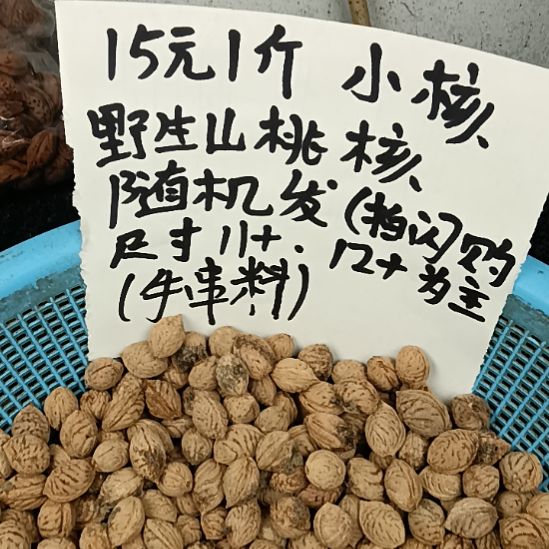 15元1斤 小核
野生山桃核
随机发(拍闪购
尺寸11+.12+为主
(手串料)